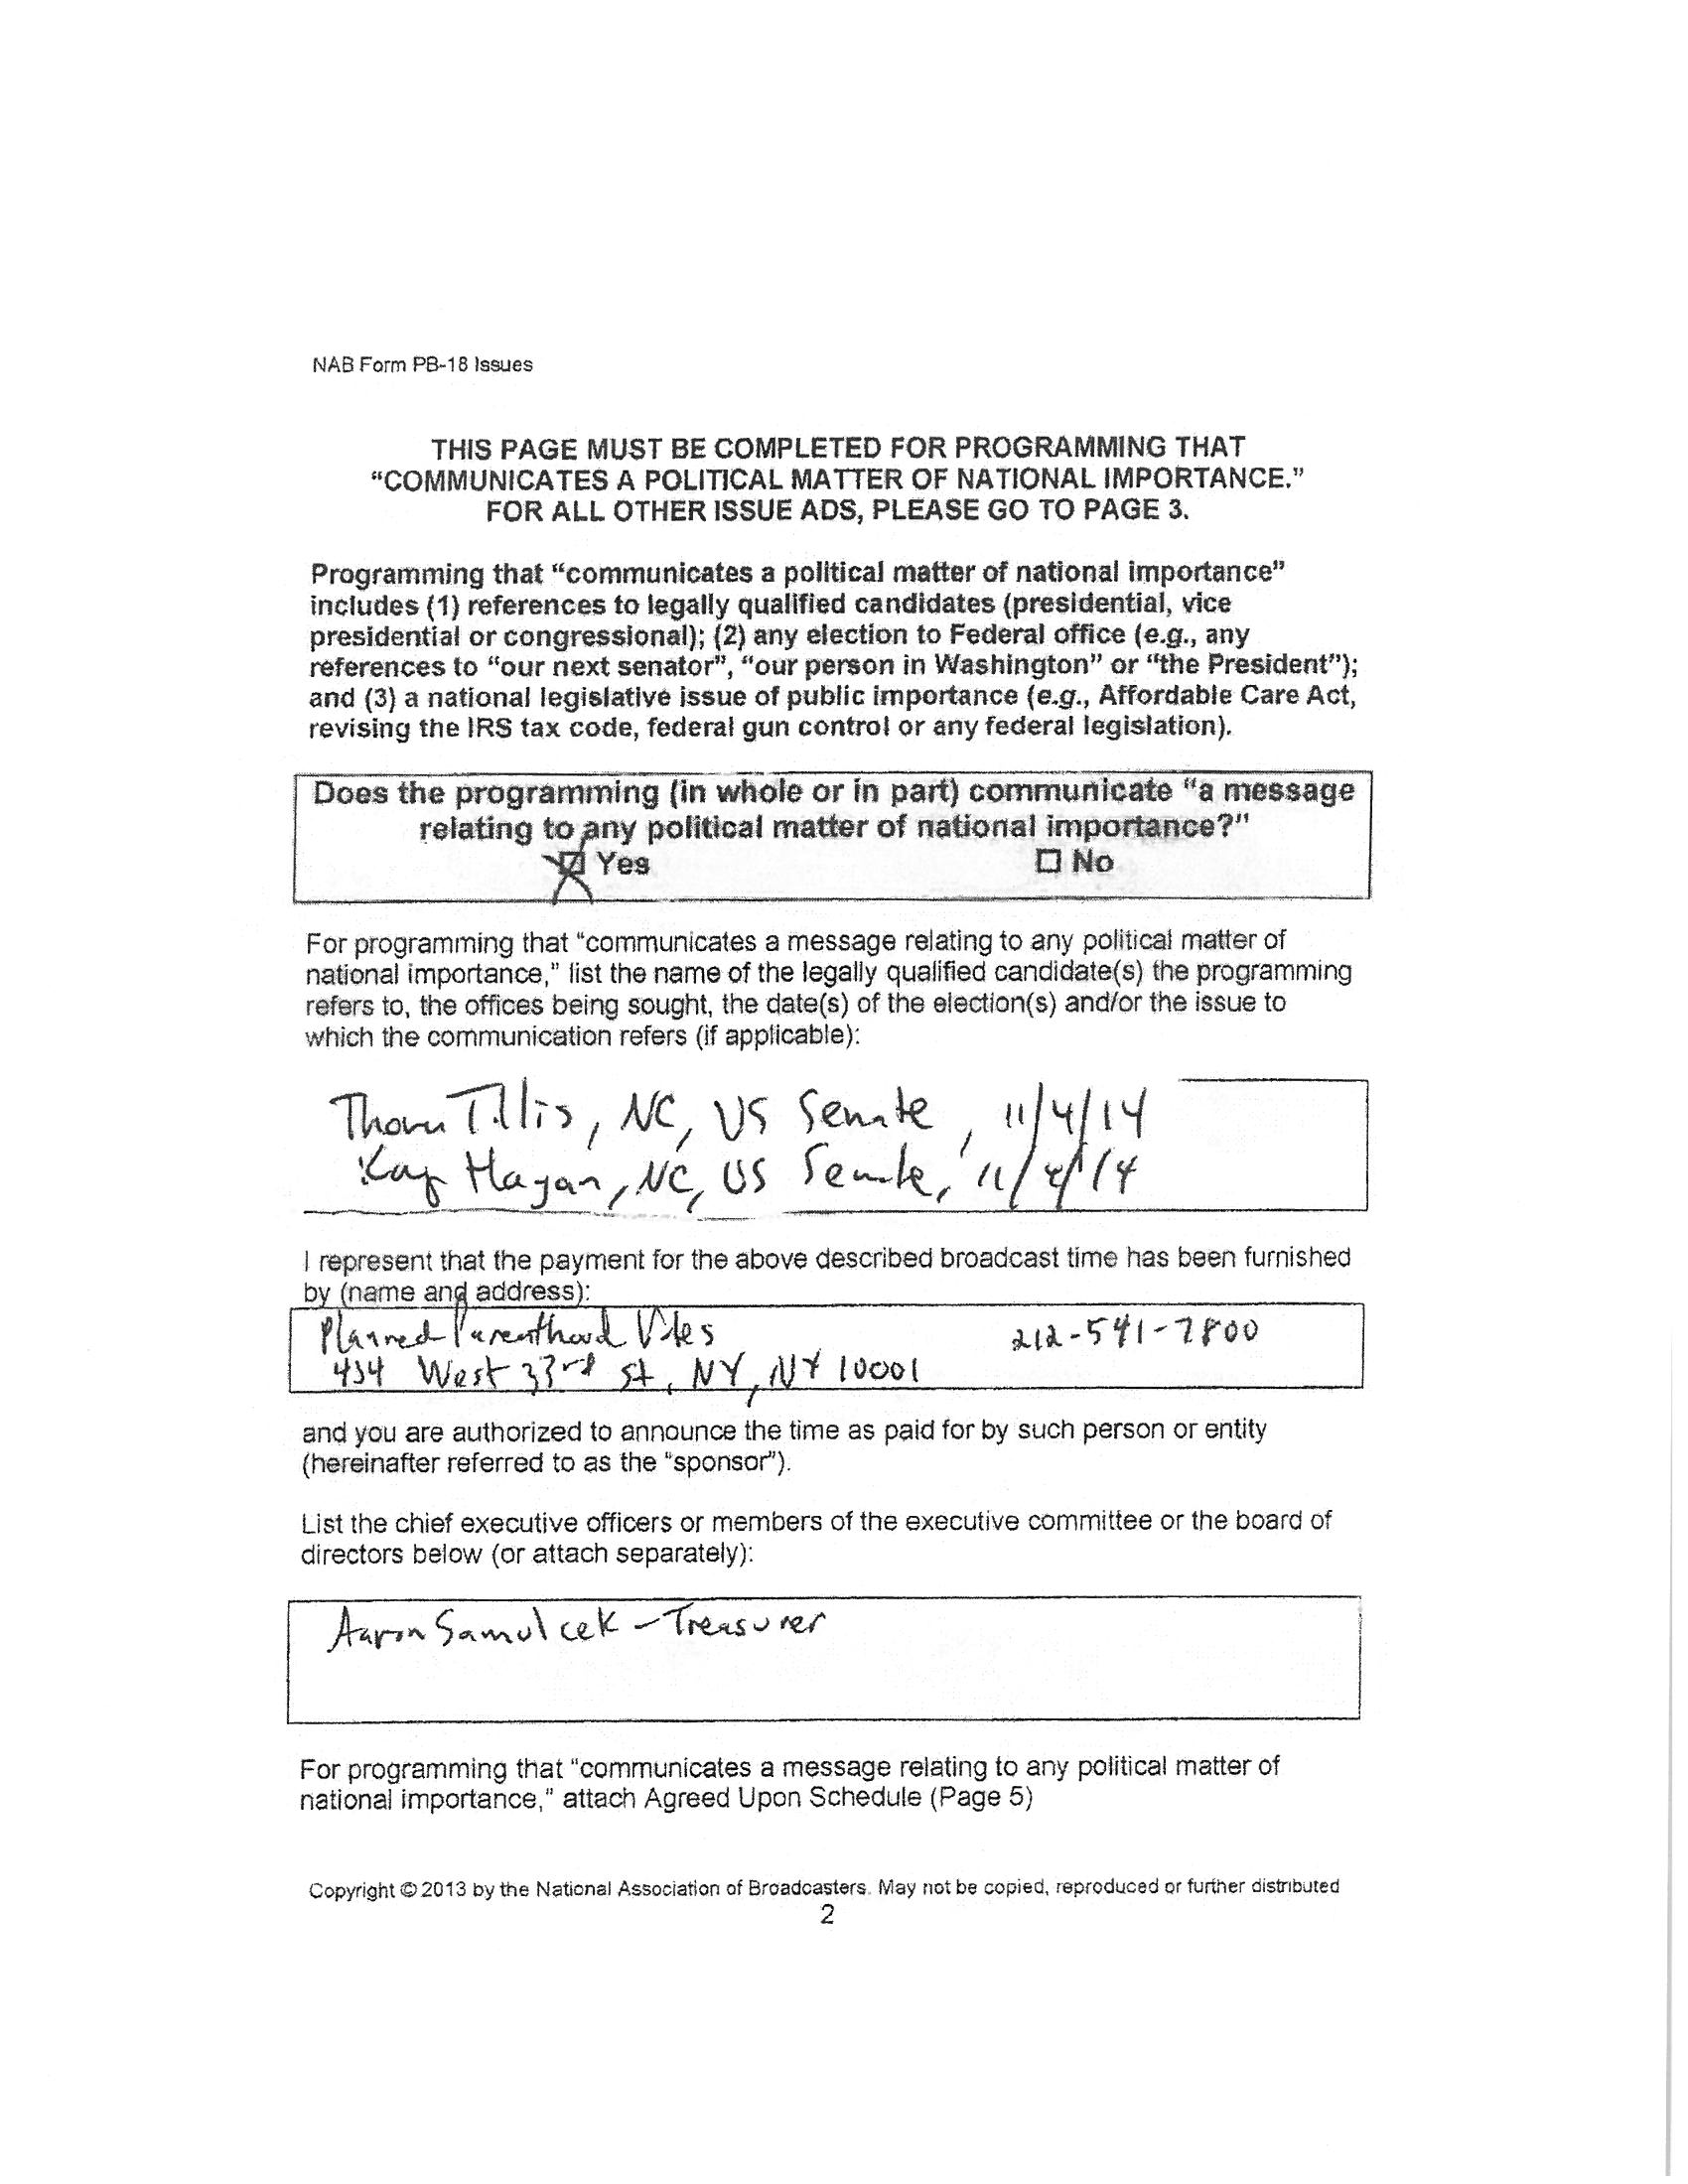 NAB Form PB-18 Issues
THIS PAGE MUST BE COMPLETED FOR PROGRAMMING THAT
“COMMUNICATES A POLITICAL MATTER OF NATIONAL IMPORTANCE.”
FOR ALL OTHER ISSUE ADS, PLEASE GO TO PAGE 3.
Programming that “communicates a political matter of national importance”
includes (1) references to legally qualified candidates (presidential, vice
presidential or congressional); (2) any election to Federal office (e.g., any
references to “our next senator”, “our person in Washington” or “the President”);
and (3) a national legislative issue of public importance (e.g., Affordable Care Act,
revising the IRS tax code, federal gun control or any federal legislation).
Does the programming (in whole or in part) communicate “a message
relating to any political matter of national importance?”
☒ Yes ☐ No
For programming that “communicates a message relating to any political matter of
national importance,” list the name of the legally qualified candidate(s) the programming
refers to, the offices being sought, the date(s) of the election(s) and/or the issue to
which the communication refers (if applicable):
Thom Tillis, NC, US Senate, 11/4/14
Kay Hagan, NC, US Senate, 11/4/14
I represent that the payment for the above described broadcast time has been furnished
by (name and address):
Planned Parenthood Votes 212-541-7800
434 West 33rd St, NY, NY 10001
and you are authorized to announce the time as paid for by such person or entity
(hereinafter referred to as the “sponsor”).
List the chief executive officers or members of the executive committee or the board of
directors below (or attach separately):
Aaron Samulcek - Treasurer
For programming that “communicates a message relating to any political matter of
national importance,” attach Agreed Upon Schedule (Page 5)
Copyright © 2013 by the National Association of Broadcasters. May not be copied, reproduced or further distributed
2